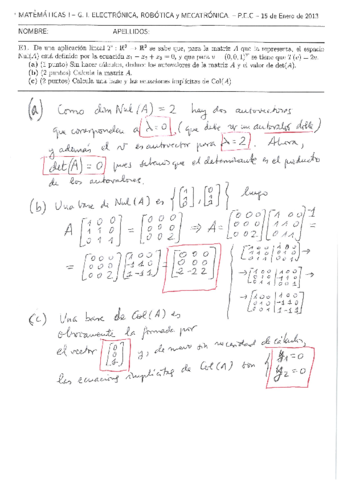 MATEMÁTICAS I – G. I. ELECTRÓNICA, ROBÓTICA y MECATRÓNICA – P.E.C – 15 de Enero de 2013
NOMBRE: APELLIDOS:
E1. De una aplicación lineal T : R³ → R³ se sabe que, para la matriz A que la representa, el espacio
Nul(A) está definido por la ecuación x₁ − x₂ + x₃ = 0, y que para v = (0,0,1)ᵀ se tiene que T(v) = 2v.
(a) (1 punto) Sin hacer cálculos, deduce los autovalores de la matriz A y el valor de det(A).
(b) (2 puntos) Calcula la matriz A.
(c) (2 puntos) Calcula una base y las ecuaciones implícitas de Col(A)
(a) Como dim Nul(A) = 2 hay dos autovectores
que corresponden a λ=0, (que debe ser un autovalor doble)
y además el v es autovector para λ=2. Ahora,
det(A) = 0 pues sabemos que el determinante es el producto
de los autovalores.
(b) Una base de Nul(A) es {[1 1 0], [0 1 1]} luego
A [1 0 0; 1 1 0; 0 1 1] = [0 0 0; 0 0 0; 0 0 2] ⇒ A = [0 0 0; 0 0 0; 0 0 2] [1 0 0; 1 1 0; 0 1 1]⁻¹
= [0 0 0; 0 0 0; 0 0 2] [1 0 0; -1 1 0; 1 -1 1] = [0 0 0; 0 0 0; 2 -2 2]
(c) Una base de Col(A) es
obviamente la formada por
el vector [0 0 1] y, de nuevo sin necesidad de cálculos,
las ecuaciones implícitas de Col(A) son { y₁=0
y₂=0